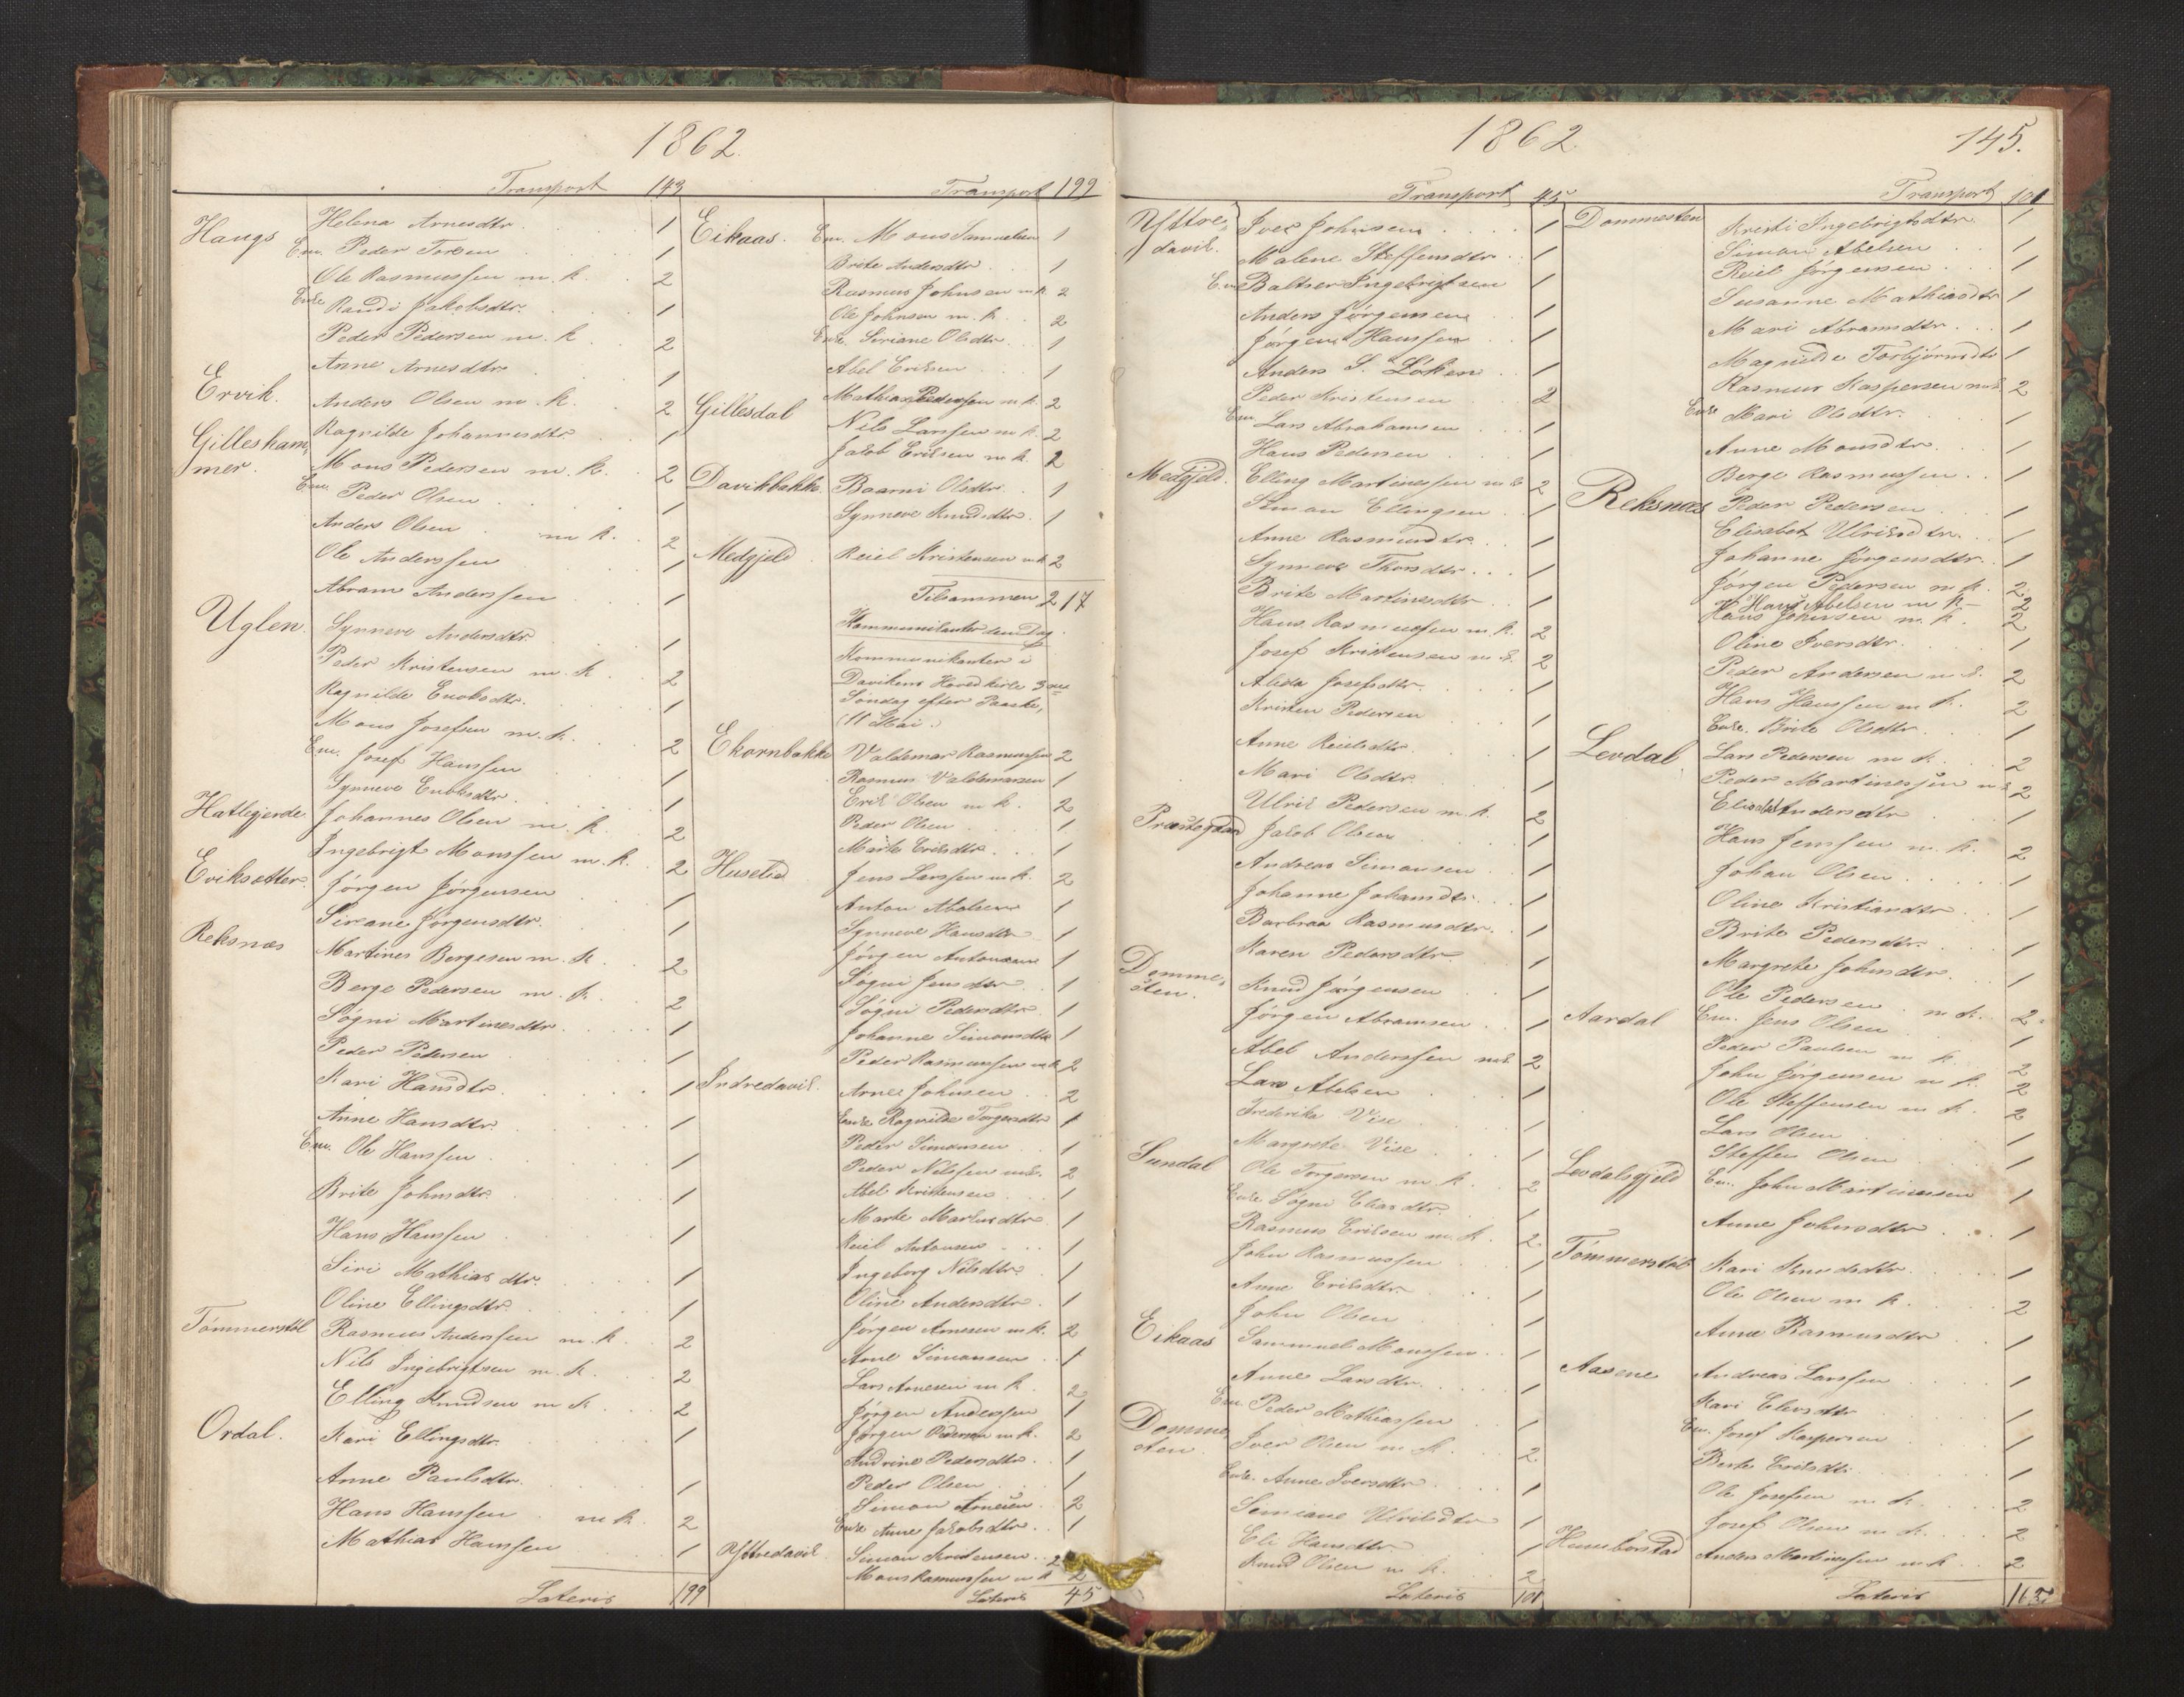 1862.
Transport 143
Haugs Helena Arnesdtr. 1
Em. Peder Torsen 1
Ole Rasmussen m. k. 2
Enke Randi Jakobsdtr. 1
Peder Pedersen m. k. 2
Anne Arnesdtr 1
Ervik. Anders Olsen m. k. 2
Gilleshammer. Ragnilde Johannesdtr 1
Mons Pedersen m. k. 2
Em. Peder Olsen 1
Anders Olsen m k. 2
Ole Anderssen 1
Abram Anderssen 1
Uglen. Synneve Andersdtr. 1
Peder Kristensen m. k. 2
Ragnilde Enoksdtr. 1
Mons Josefsen m. k. 2
Em. Josef Hanssen 1
Synneve Enoksdtr. 1
Hatlegjerde. Johannes Olsen m k. 2
Ingebrigt Monssen m. k. 2
Eviksætter. Jörgen Jörgensen 1
Siriane Jörgensdtr. 1
Reksnæs Martines Bergesen m. k. 2
Berge Pedersen m. k. 2
Sögni Martinesdtr. 1
Peder Pedersen 1
Kari Hansdtr. 1
Anne Hansdtr. 1
Em. Ole Hanssen 1
Brite Johnsdtr. 1
Hans Hanssen 1
Siri Mathiasdtr. 1
Oline Ellingsdtr. 1
Tömmerstöl Rasmus Anderssen m. k. 2
Nils Ingebrigtsen m. k. 2
Elling Knudsen m k. 2
Ordal. Kari Ellingsdtr. 1
Anne Paulsdtr. 1
Hans Hanssen m k. 2
Mathias Hanssen 1
Lateris 199
Transport 199
Eikaas. Em. Mons Samuelsen 1
Brite Andersdtr. 1
Rasmus Johnsen m k 2
Ole Johnsen m. k. 2
Enke. Siriane Olsdtr. 1
Abel Eriksen 1
Gillesdal Mathias Pederssen m k. 2
Nils Larssen m k. 2
Jakob Eriksen m k. 2
Davikbakke. Baarni Olsdtr. 1
Synneve Knudsdtr. 1
Medgjeld Reiel Kristensen m k 2
Tilsammen 217
Kommunikanter den Dag.
Kommunikanter i
Davikens Hovedkirke 3die
Söndag efter Paaske,
(11 Mai.)
Ekornbakke Valdemar Rasmussen 2
Rasmus Valdemarsen 1
Erik Olsen m k. 2
Peder Olsen 1
Marte Eriksdtr. 1
Husetø Jens Larssen m k. 2
Anton Abelsen 1
Synneve Hansdtr 1
Jörgen Antonsen 1
Sögni Jensdtr. 1
Sögni Pedersdtr. 1
Johanne Simonsdtr 1
Peder Rasmussen m k 2
Indredavik. Arne Johnsen 2
Enke Ragnilde Torgersdtr 1
Peder Simonsen 1
Peder Nilssen m k. 2
Abel Kristensen 1
Marte Markusdtr. 1
Reiel Antonsen 1
Ingeborg Nilsdtr. 1
Oline Andersdtr. 1
Jörgen Arnesen m k. 2
Arne Simonsen 1
Lars Arnesen m k. 2
Jörgen Anderssen 1
Jörgen Pedersen m k. 2
Andrine Pedersdtr. 1
Peder Olsen 1
Simon Arnesen 2
Enke Anne Jakobsdtr. 1
Yttredavik Simon Kristensen 2
Mons Rasmussen m k 2
Lateris 45
1862 145.
Transport 45
Yttredavik. Iver Johnsen 1
Malene Steffensdtr. 1
Em. Baltser Ingebrigtsen 1
Anders Jörgensen 1
Jörgen Hanssen 1
Anders S. Löken 1
Peder Kristensen 2
Em. Lars Abrahamsen 1
Hans Pedersen 1
Medgjeld. Elling Martinessen m k 2
Simon Ellingsen 1
Anne Rasmusdtr. 1
Synneve Thorsdtr. 1
Brite Martinesdtr. 1
Hans Rasmussen m. k. 2
Josef Kristensen m k. 2
Alida Josefsdtr. 1
Kristen Pedersen 1
Anne Reielsdtr. 1
Mari Olsdtr. 1
Ulrik Pedersen m. k. 2
Præstegaard Jakob Olsen 1
Andreas Simonsen 1
Johanne Johansdtr. 1
Barbraa Rasmusdtr. 1
Karen Pedersdtr. 1
Dommesten. Knud Jörgensen 1
Jörgen Abramsen 1
Abel Anderssen m k. 2
Lars Abelsen 1
Frederike Vise 1
Margrete Vise 1
Sundal Ole Torgersen m k. 2
Enke Sögni Eliasdtr. 1
Rasmus Eriksen m. k. 2
John Rasmussen 1
Anne Eriksdtr. 1
John Olsen 1
Eikaas Sammuel Monssen 1
Anne Larsdtr. 1
Em. Peder Mathiassen 1
Dommesten. Iver Olsen m k. 2
Enke. Anne Iversdtr. 1
Simiane Ulriksdtr 1
Eli Hansdtr. 1
Knud Olsen m k. 2
Lateris 101
Transport 101
Dommesten Kristi Ingebrigtsdtr. 1
Simon Abelsen 1
Reiel Jörgensen 1
Susanne Mathiasdtr 1
Mari Abramsdtr. 1
Magnilde Torbjörnsdtr 1
Rasmus Kaspersen m k. 2
Enke Mari Olsdtr. 1
Anne Monsdtr. 1
Berge Rasmussen 1
Reksnæs Peder Pedersen 1
Elisabet Ulriksdtr. 1
Johanne Jörgensdtr. 1
Jörgen Pedersen m k. 2
Hans Abelsen m k. 2
Hans Johnsen m. k. 2
Oline Iversdtr. 1
Peder Andersen m k. 2
Hans Hanssen m k. 2
Enke. Brite Olsdtr. 1
Levdal Lars Pedersen m k. 2
Peder Martinessen m k 2
Elisabet Andersdtr 1
Hans Jenssen m. k. 2
Johan Olsen 1
Oline Kristiansdtr. 1
Brite Pedersdtr. 1
Margrete Johnsdtr. 1
Ole Pedersen m k. 2
Aardal Em. Jens Olsen 1
Peder Paulsen m k. 2
John Jörgensen m k. 2
Ole Steffensen m k. 2
Lars Olsen 1
Steffen Olsen 1
Levdalsgjeld Em. John Martinussen 1
Anne Johnsdtr 1
Tömmerstöl Kari Knudsdtr. 1
Ole Olsen m k. 2
Anne Rasmusdtr 1
Aasene Andreas Larssen 1
Kari Eliasdtr. 1
Em. Josef Kaspersen 1
Berte Eriksdtr. 1
Ole Josefsen m k. 2
Josef Olsen m k. 2
Hunnborstad Anders Martinessen m k. 2
Lateris 165